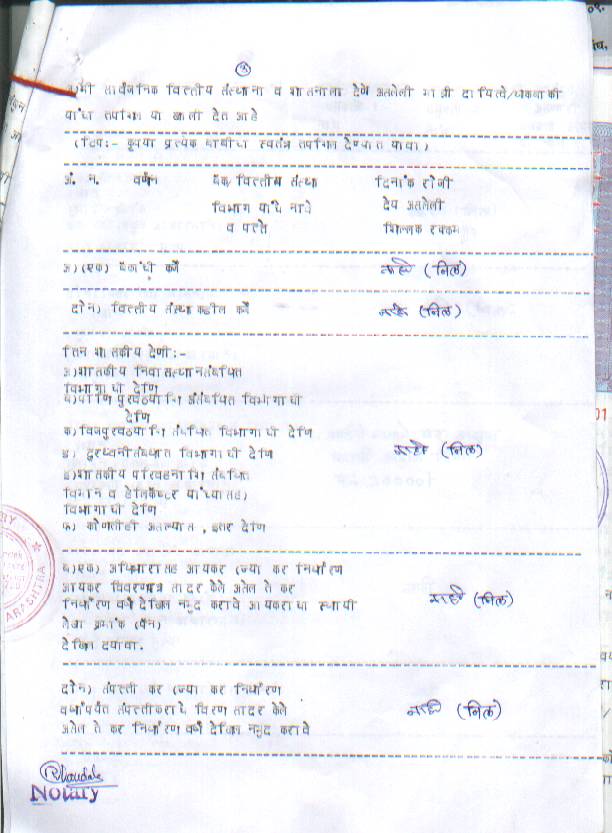 मी सार्वजनिक वित्तीय संस्थाना व शासनाला देणे असलेली माझी दायित्वे/थकबाकी
यांचा तपशिल या खाली देत आहे
(टिप:- कृपया प्रत्येक बाबीचा स्वतंत्र तपशिल देण्यात यावा)
अं. न. वर्णन बँक/वित्तीय संस्था दिनांक रोजी
विभाग यांचे नावे देय असलेली
व पत्ते शिल्लक रक्कम
अ)(एक) बँकांची कर्जे नाही (निल)
दोन) वित्तीय संस्थाकडील कर्जे नाही (निल)
तिन शासकीय देणी:-
अ)शासकीय निवासस्थानसंबंधित
विभागाची देणि
ब)पाणि पुरवठयाशि संबंधित विभागाची
देणि
क)विजपुरवठयाशि संबंधित विभागाची देणि
ड) दुरध्वनीसंबंधात विभागाची देणि नाही (निल)
इ)शासकीय परिवहनाशि संबंधित
विमान व हेलिकॅप्टर यांच्यासह)
विभागाची देणि
फ) कोणतीही असल्यास , इतर देणि
ब)एक) अधिभारासह आयकर (ज्या कर निर्धारण
आयकर विवरणपत्र सादर केले असेल ते कर
निर्धारण वर्ष देखिल नमुद करावे आयकराचा स्थायी नाही (निल)
लेखा क्रमांक (पॅन)
देखिल दयावा.
दोन) संपत्ती कर (ज्या कर निर्धारण
वर्षापर्यंत संपत्तीकराचे विवरण सादर केले नाही (निल)
असेल ते कर निर्धारण वर्ष देखिल नमुद करावे
Notary